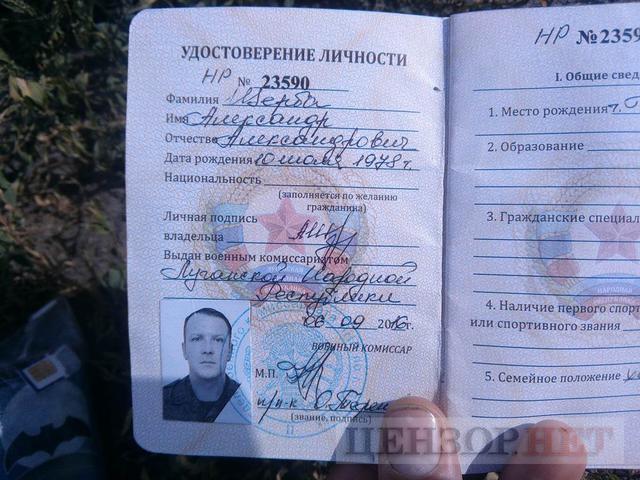 УДОСТОВЕРЕНИЕ ЛИЧНОСТИ
НР № 23590
Фамилия Щерба
Имя Александр
Отчество Александрович
Дата рождения 10 июля 1978 г.
Национальность
(заполняется по желанию
гражданина)
Личная подпись
владельца
Выдан военным комиссариатом
Луганской Народной
Республики
06 09 2016г.
ВОЕННЫЙ КОМИССАР
М.П.
п/п-к О.
(звание, подпись)
НР № 2359
I. Общие све
1. Место рождения г.
2. Образование
3. Гражданские специал
4. Наличие первого спорт
или спортивного звания
5. Семейное положение
ЦЕНЗОР.НЕТ